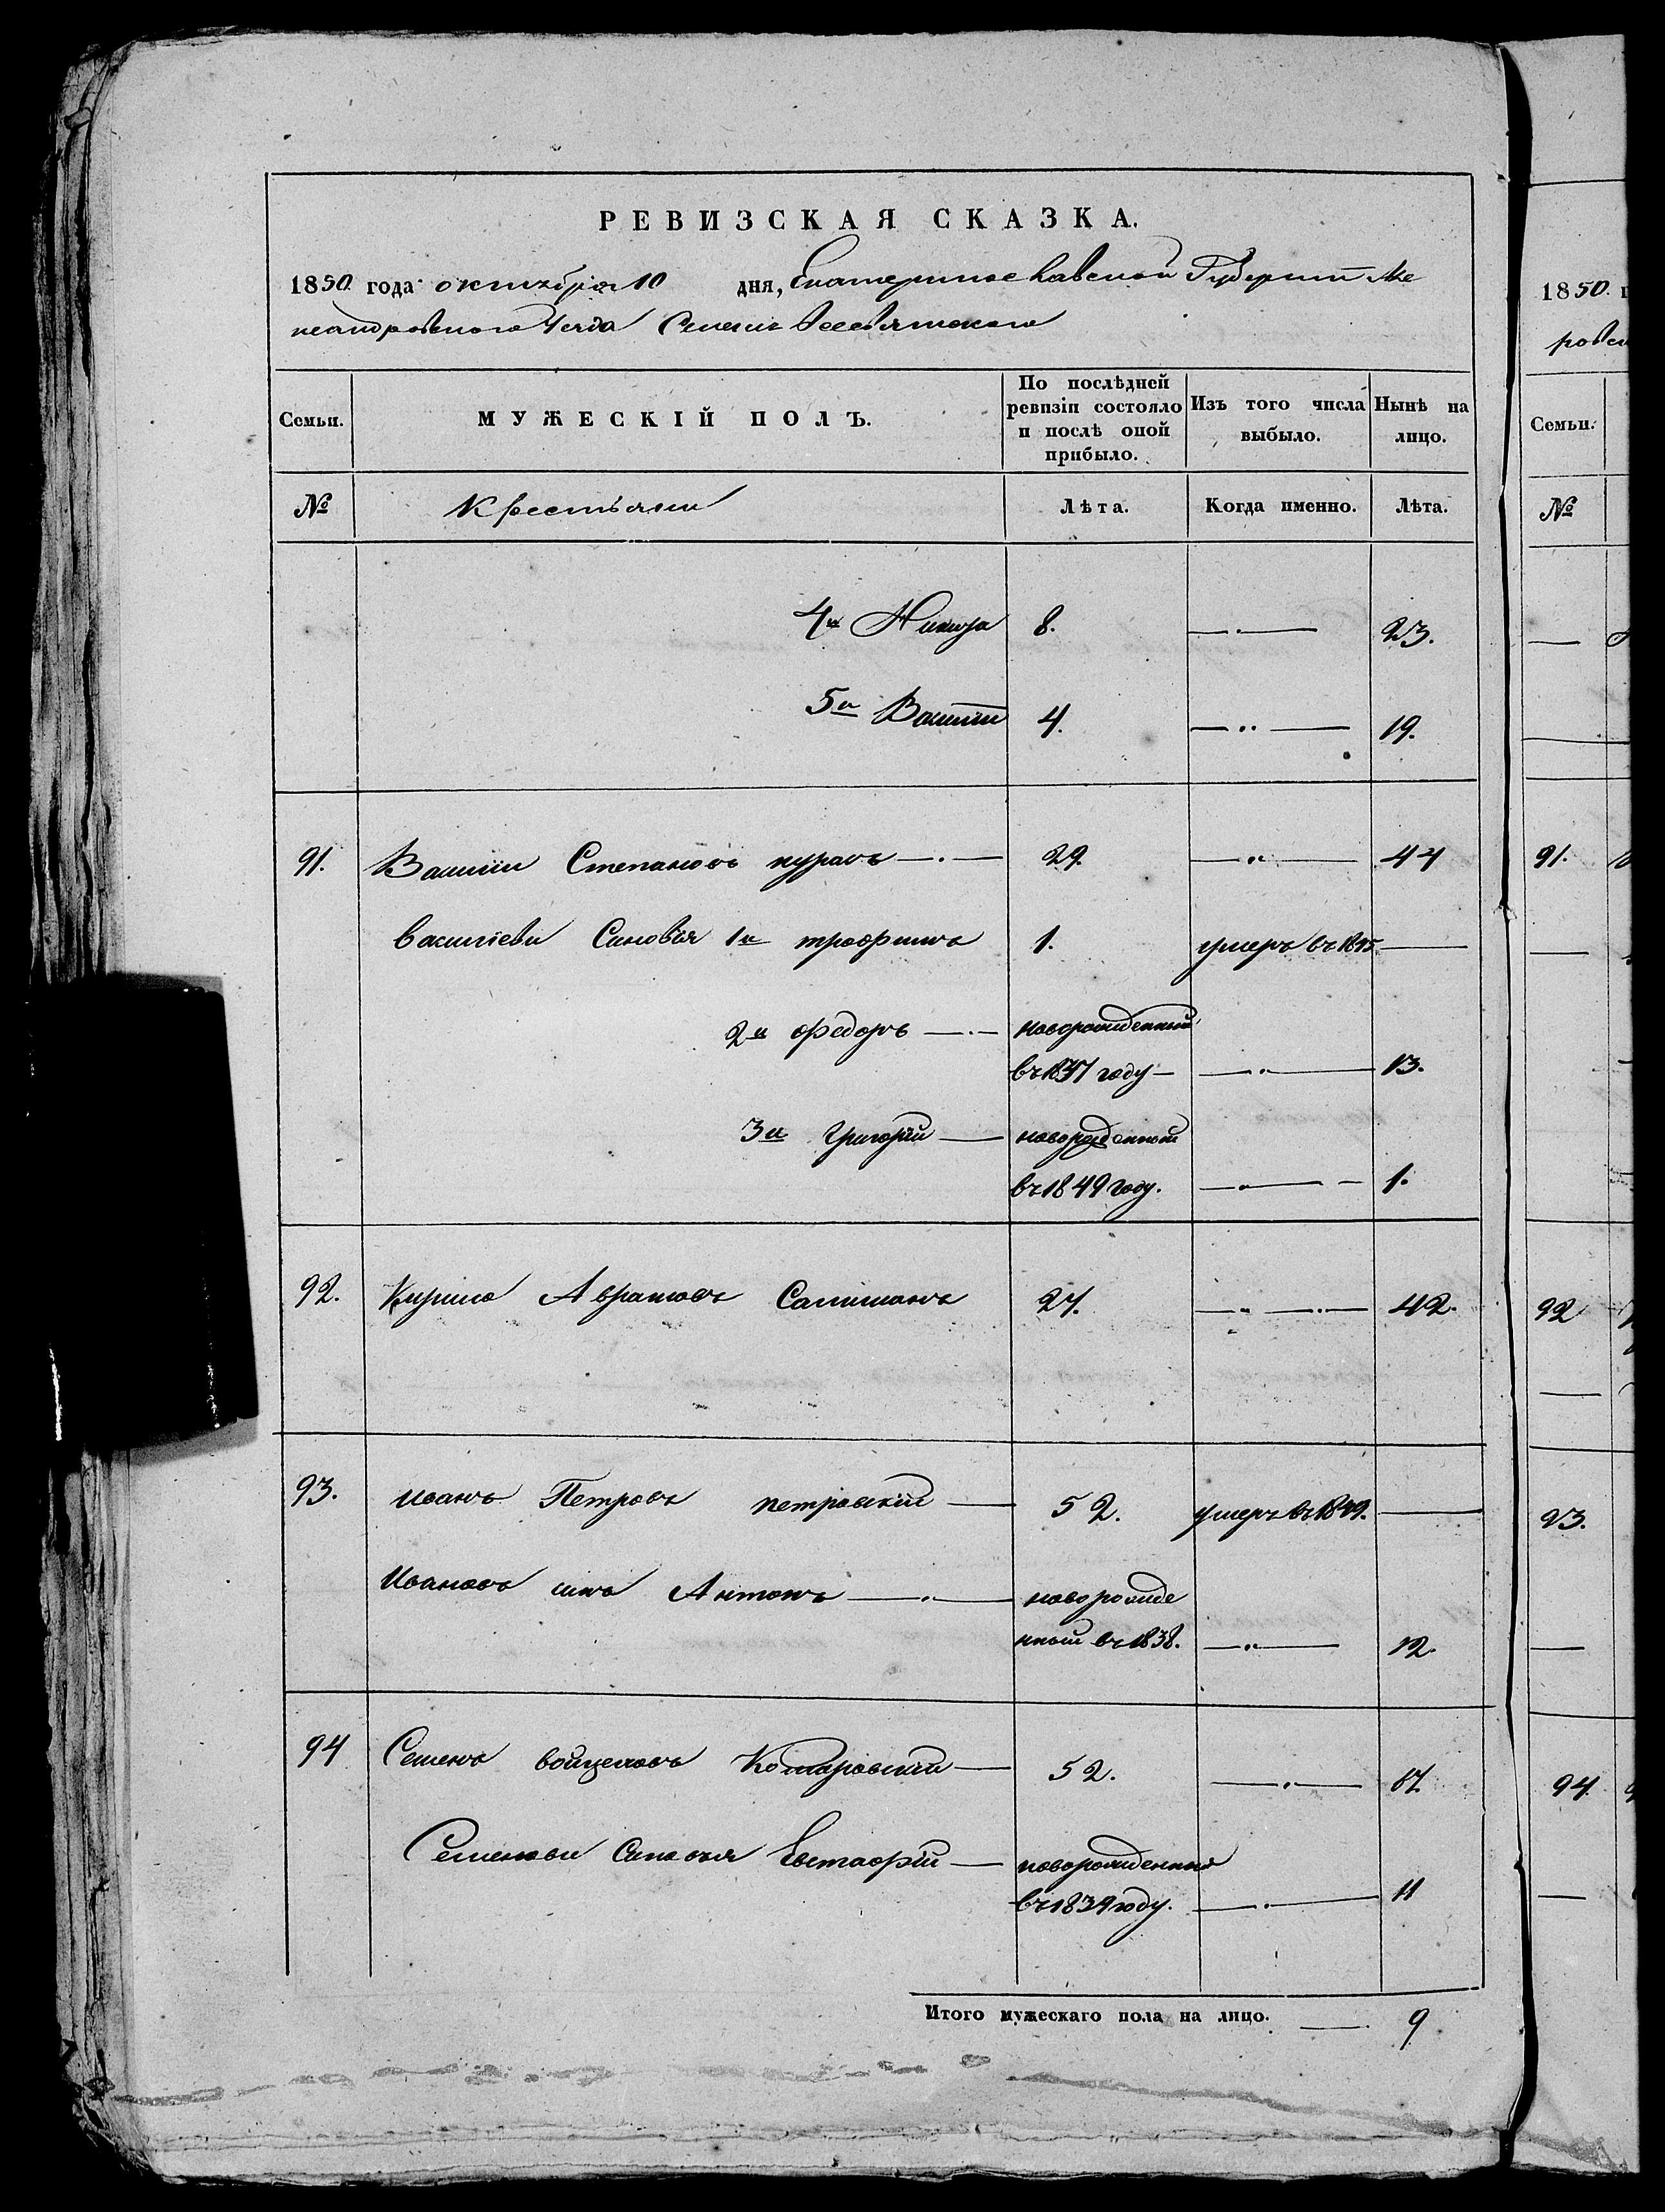 РЕВИЗСКАЯ СКАЗКА.
1850 года октября 10 дня, Екатеринославской Губернiи Але
ксандровского Уезда Селения
Семьи.
МУЖЕСКIЙ ПОЛЪ.
По послѣдней ревизiи состояло и послѣ оной прибыло.
Изъ того числа выбыло.
Нынѣ на лицо.
№ Крестьяне Лѣта. Когда именно. Лѣта.
4й 8. 23.
5й Василiй 4. 19.
91. Василiй Степановъ 29 44
Василiеви Синовья 1й трофимъ 1. умеръ въ 1845
2й федоръ новорожденный
въ 1837 году 13.
3й Григорiй новорожденный
въ 1849 году. 1.
92. Кирило Аврамовъ 27. 42.
93. иванъ Петровъ петровскiй 52. умеръ въ 1849.
Ивановъ синъ Антонъ новорожде
нный въ 1838. 12.
94 Семенъ войцеховъ Комаровскiй 52. 67.
Семенови Синовья Евстафiй новорожденный
въ 1839 году. 11
Итого мужескаго пола на лицо. 9
1850.
Семьи.
№
91.
92
93.
94.